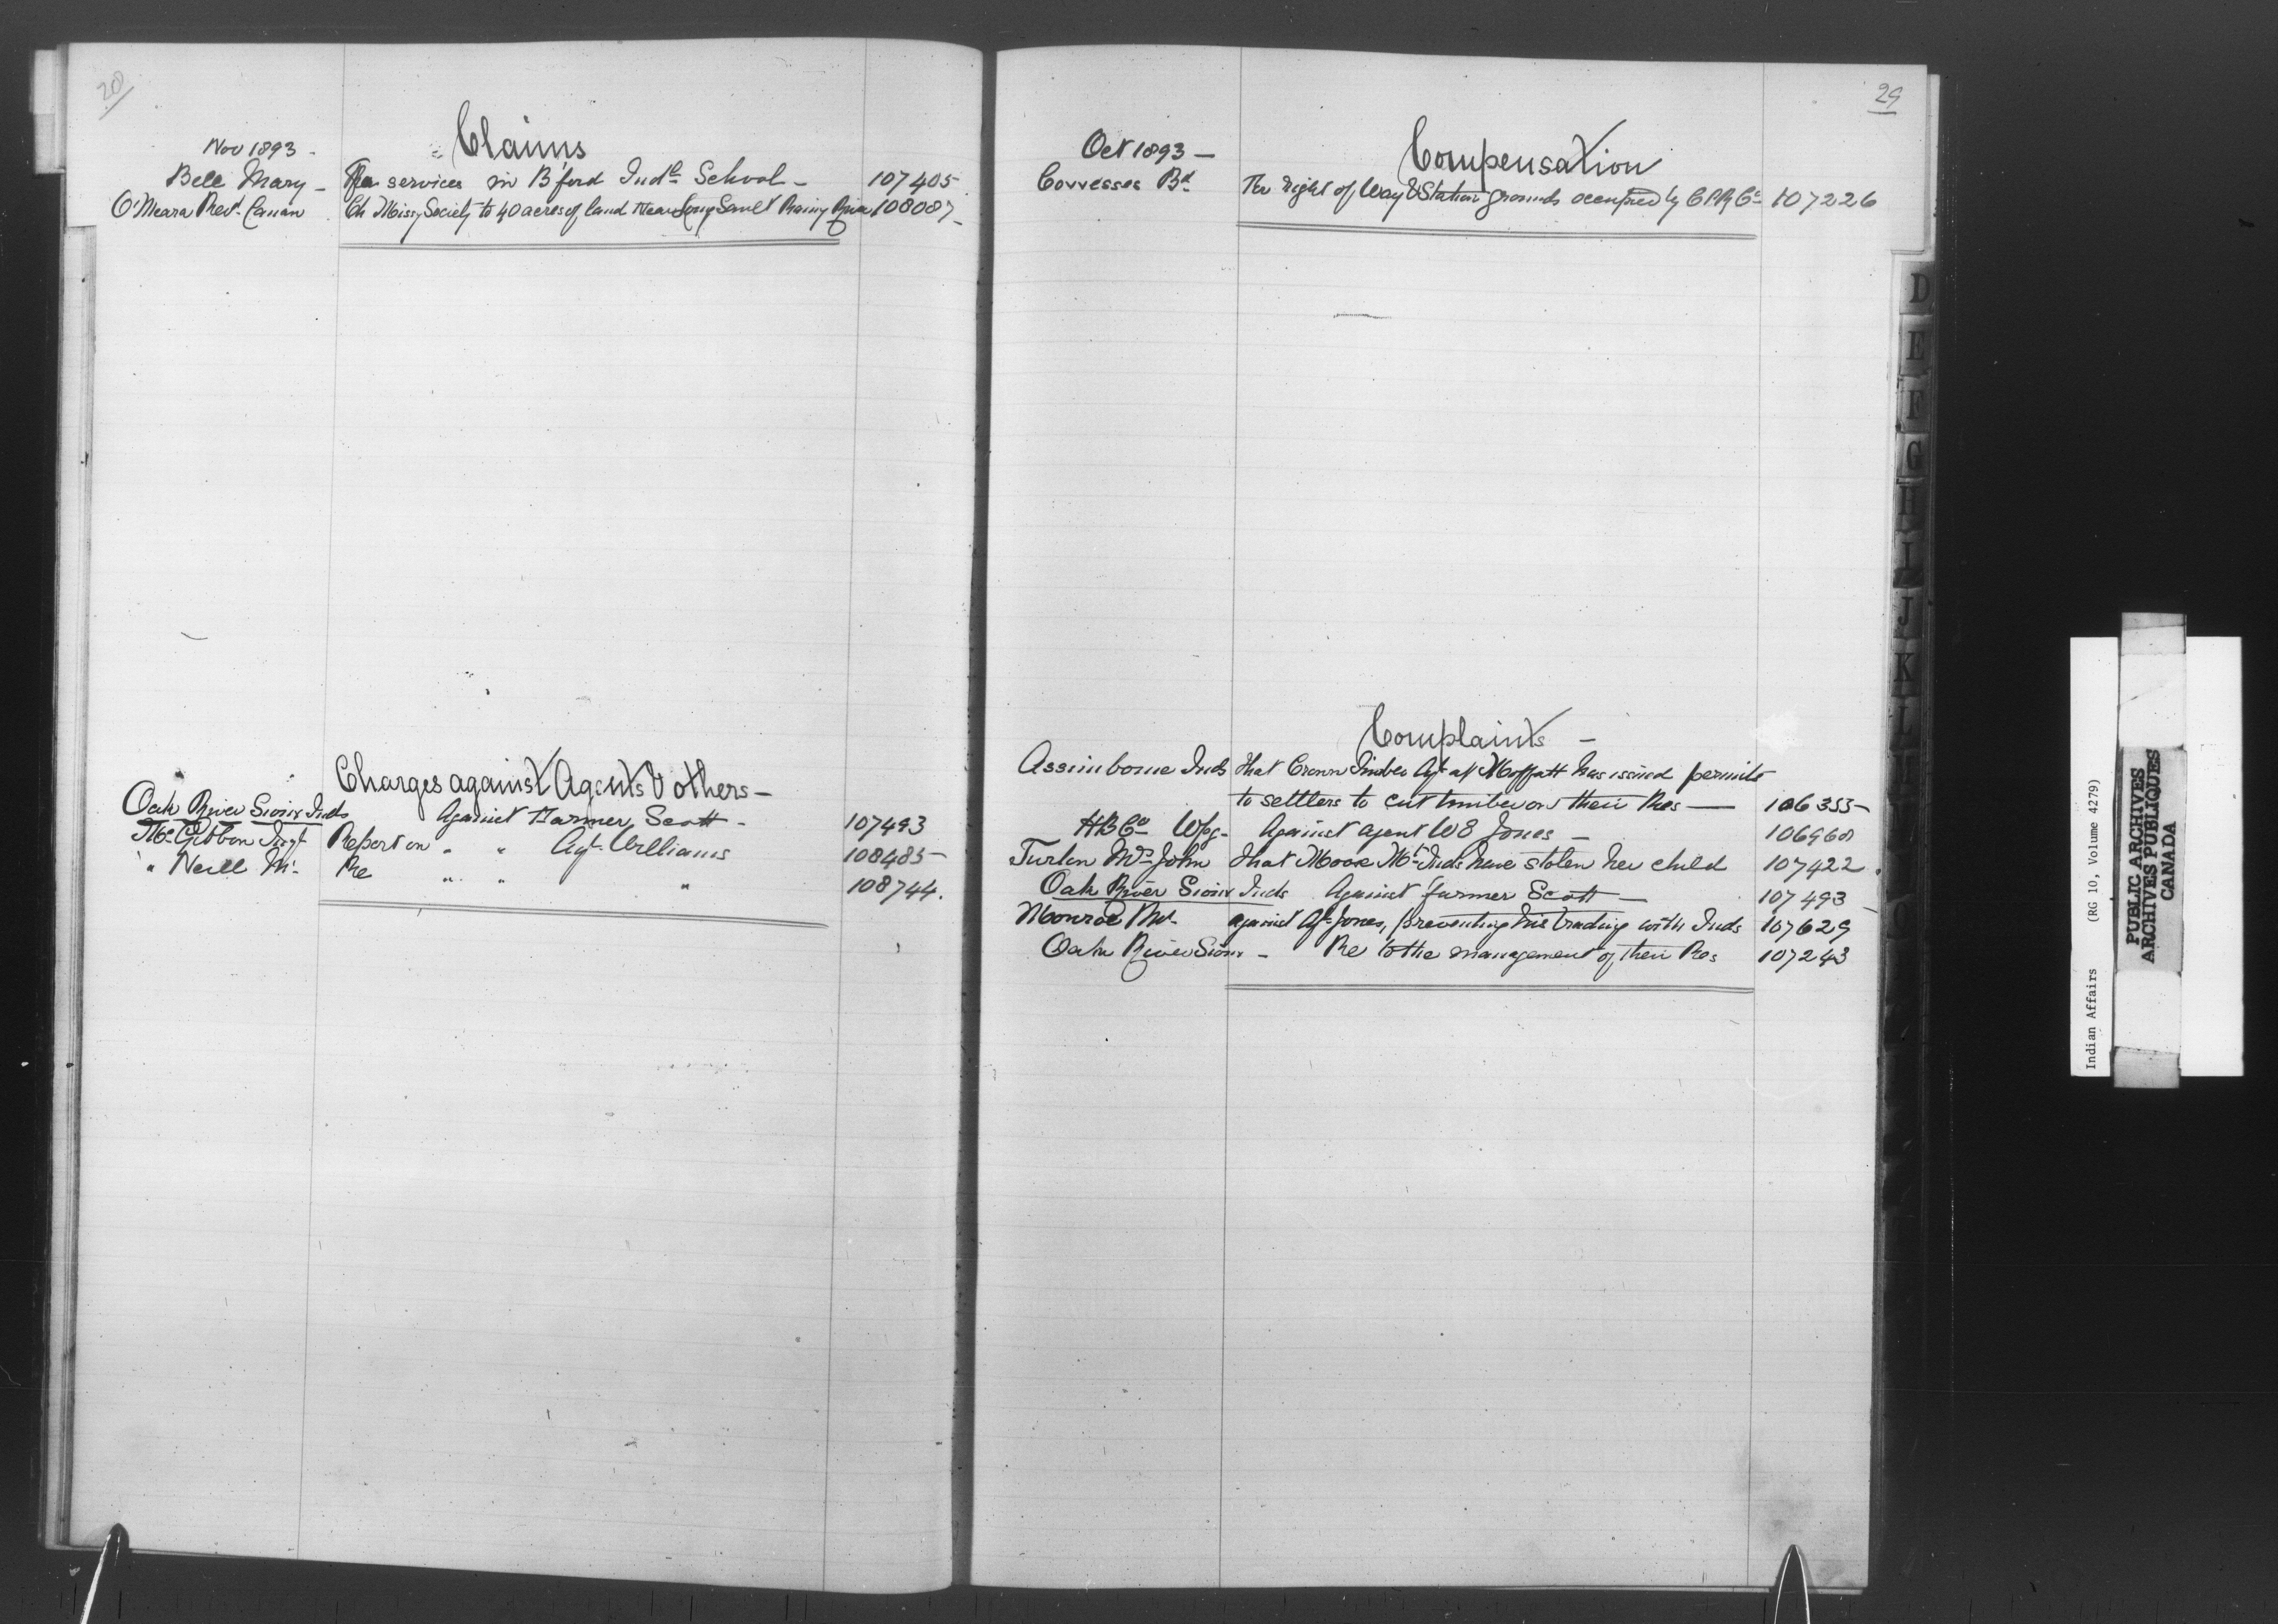 28
Claims
Nov 1893 -
Bell Mary - For services in B'ford Indl School - 107405
O'Meara Revd Canon Ch Missy Society to 40 acres of land near Long Sault Rainy River 108087 -
Charges against Agents & others -
Oak River Sioux Inds Against Farmer Scott - 107493
McGibbon Inspr Report on " " Agt Williams 108485 -
" Neill Mr Re " " " 108744.
29
Oct 1893 -
Compensation
Cowesses Bd For right of Way & Station grounds occupied by C.P.Ry Co 107226
Complaints -
Assiniboine Inds that Crown Timber Agt at Moffatt has issued permits
to settlers to cut timber on their Res - 106355 -
HBCo Wpg - Against agent W E Jones - 106960
Mrs John that Moose Mt Inds have stolen her child 107422
Oak River Sioux Inds Against farmer Scott - 107493
Monroe against Agt Jones, preventing his trading with Inds 107629
Oak River Sioux - Re to the management of their Res 107243
D
E
F
G
H
I
J
K
L
Indian Affairs (RG 10, Volume 4279)
PUBLIC ARCHIVES
ARCHIVES PUBLIQUES
CANADA